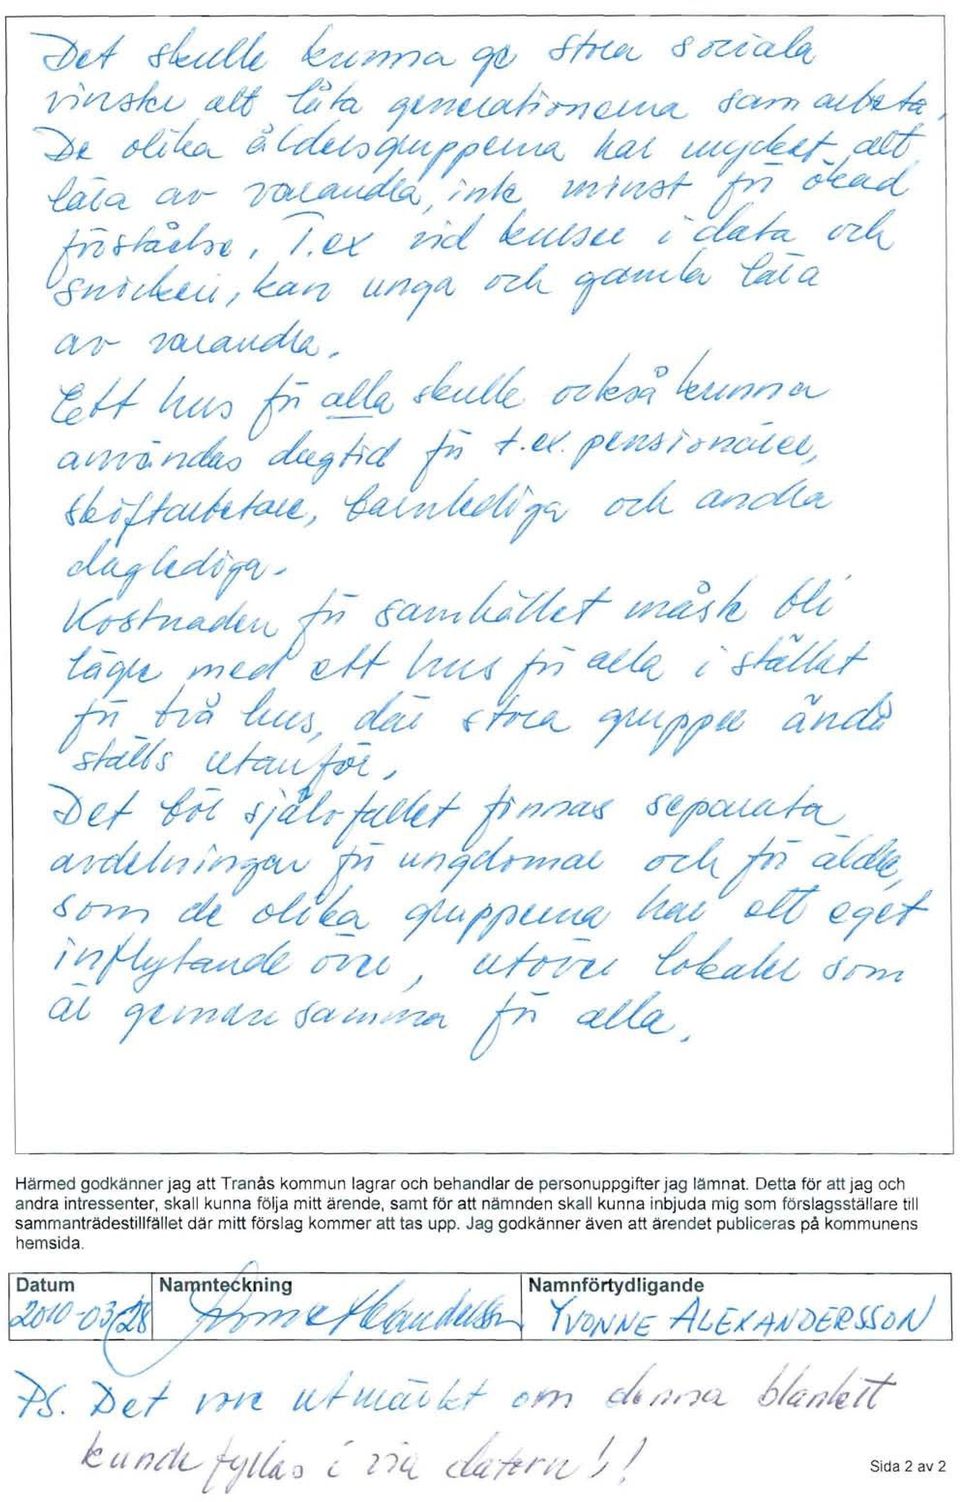 Det skulle kunna ge stora sociala
vinster att låta generationerna samarbeta,
De olika åldersgrupperna har mycket att
lära av varandra, inte minst för ökad
förståelse, T.ex vid kurser i data och
snickeri, kan unga och gamla lära
av varandra.
Ett hus för alla skulle också kunna
användas dagtid för t.ex. pensionärer,
skiftarbetare, barnlediga och andra
daglediga.
Kostnaden för samhället måste bli
lägre med ett hus för alla i stället
för två hus, där stora grupper ändå
ställs utanför.
Det bör självfallet finnas separata
avdelningar för ungdomar och för äldre,
som de olika grupperna har ett eget
inflytande över, utöver lokaler som
är gemensamma för alla.
Härmed godkänner jag att Tranås kommun lagrar och behandlar de personuppgifter jag lämnat. Detta för att jag och
andra intressenter, skall kunna följa mitt ärende, samt för att nämnden skall kunna inbjuda mig som förslagsställare till
sammanträdestillfället där mitt förslag kommer att tas upp. Jag godkänner även att ärendet publiceras på kommunens
hemsida.
Datum Namnteckning Namnförtydligande
2010-03-28 Yvonne Alexandersson YVONNE ALEXANDERSSON
PS. Det vore utmärkt om denna blankett
kunde fyllas i via datorn!!
Sida 2 av 2